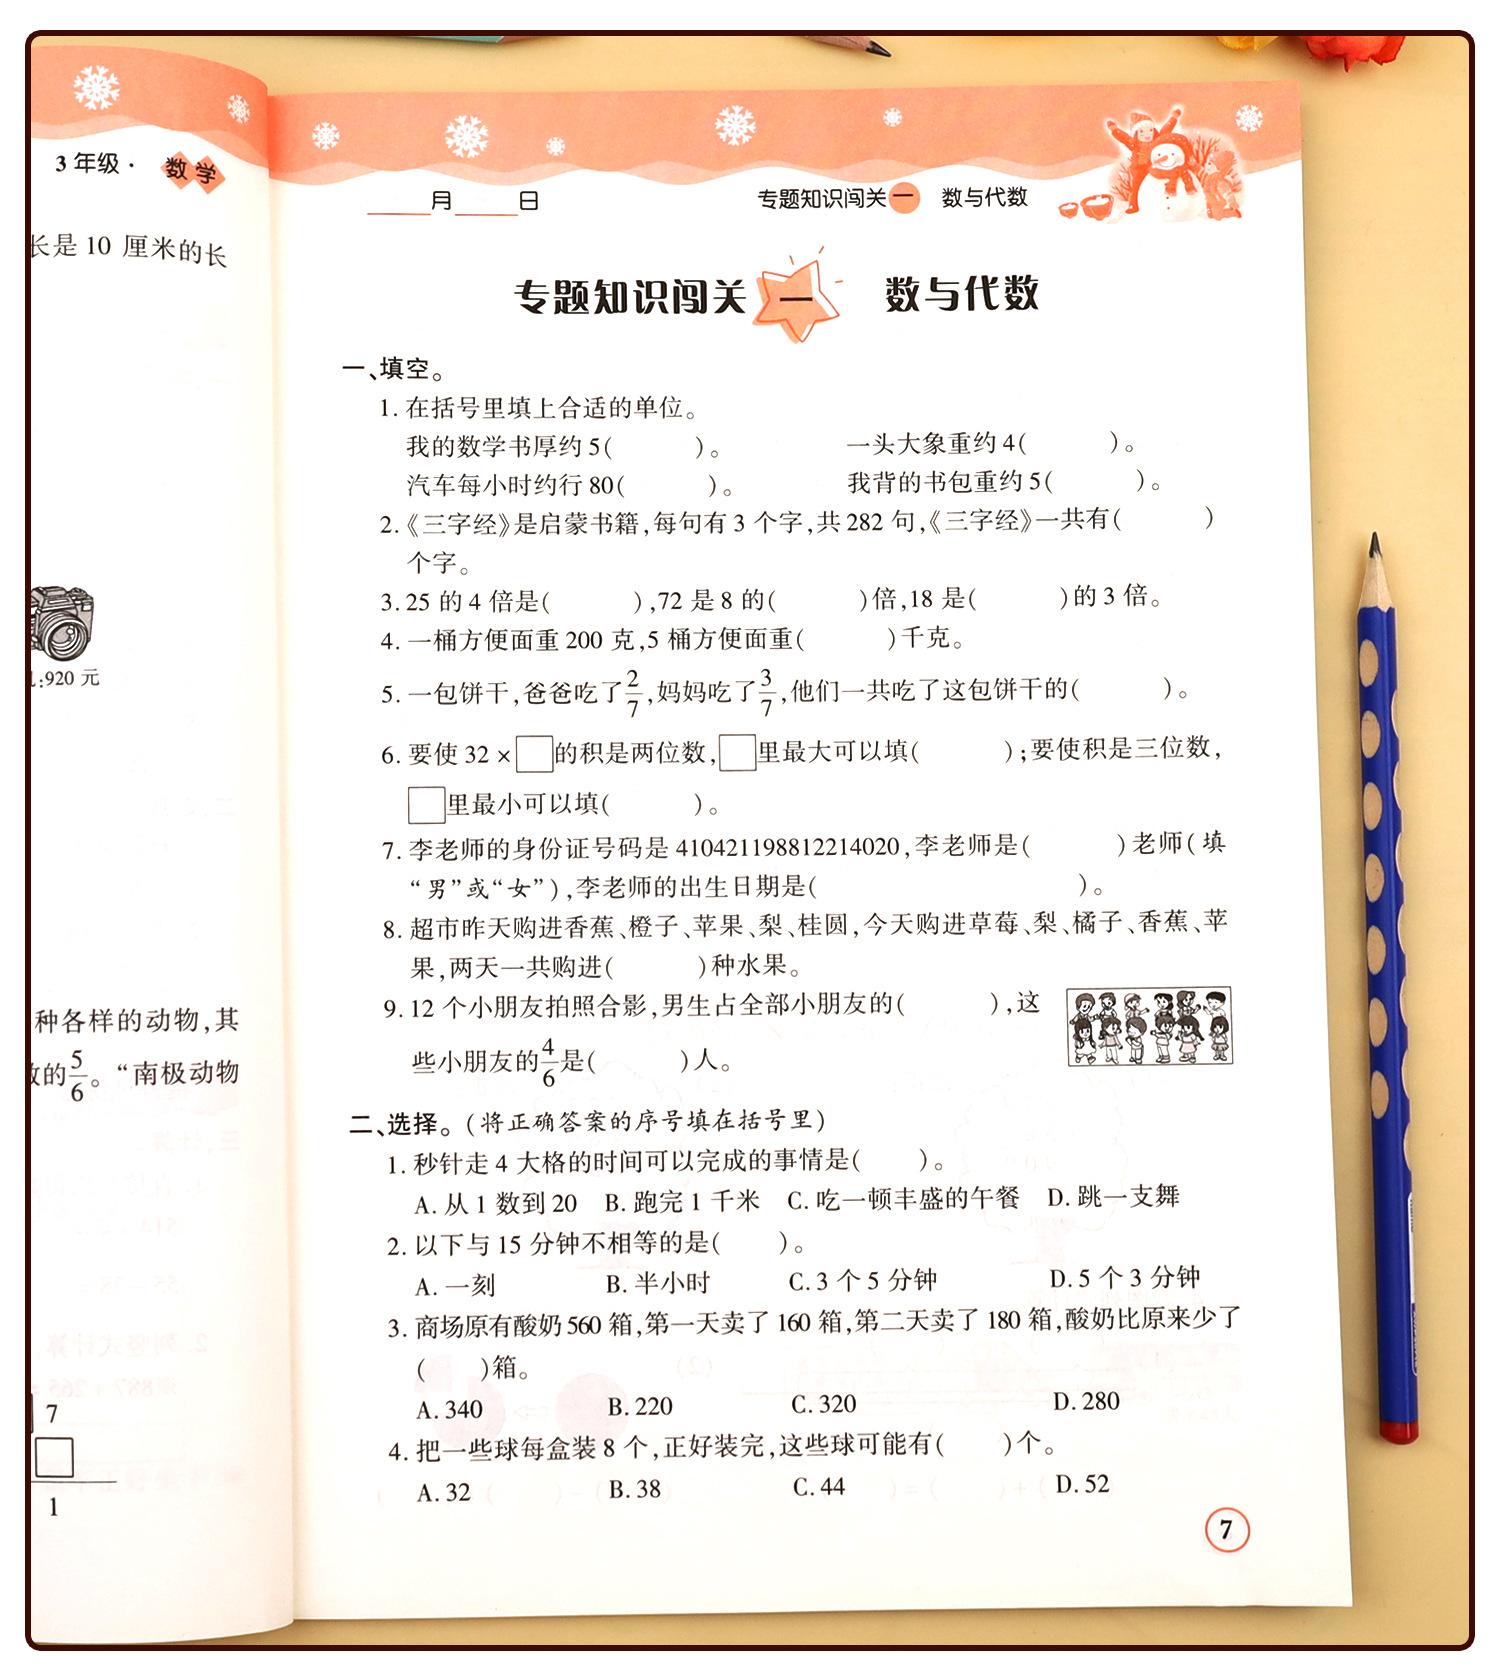 3 年级·数学
长是 10 厘米的长
:920 元
种各样的动物,其
的5/6。“南极动物
7
1
月 日
专题知识闯关一 数与代数
专题知识闯关一 数与代数
一、填空。
1. 在括号里填上合适的单位。
我的数学书厚约 5( )。 一头大象重约 4( )。
汽车每小时约行 80( )。 我背的书包重约 5( )。
2.《三字经》是启蒙书籍,每句有 3 个字,共 282 句,《三字经》一共有( )
个字。
3. 25 的 4 倍是( ),72 是 8 的( )倍,18 是( )的 3 倍。
4. 一桶方便面重 200 克,5 桶方便面重( )千克。
5. 一包饼干,爸爸吃了2/7,妈妈吃了3/7,他们一共吃了这包饼干的( )。
6. 要使 32 × □的积是两位数,□里最大可以填( );要使积是三位数,
□里最小可以填( )。
7. 李老师的身份证号码是 410421198812214020,李老师是( )老师(填
“男”或“女”),李老师的出生日期是( )。
8. 超市昨天购进香蕉、橙子、苹果、梨、桂圆,今天购进草莓、梨、橘子、香蕉、苹
果,两天一共购进( )种水果。
9. 12 个小朋友拍照合影,男生占全部小朋友的( ),这
些小朋友的4/6是( )人。
二、选择。(将正确答案的序号填在括号里)
1. 秒针走 4 大格的时间可以完成的事情是( )。
A. 从 1 数到 20 B. 跑完 1 千米 C. 吃一顿丰盛的午餐 D. 跳一支舞
2. 以下与 15 分钟不相等的是( )。
A. 一刻 B. 半小时 C. 3 个 5 分钟 D. 5 个 3 分钟
3. 商场原有酸奶 560 箱,第一天卖了 160 箱,第二天卖了 180 箱,酸奶比原来少了
( )箱。
A. 340 B. 220 C. 320 D. 280
4. 把一些球每盒装 8 个,正好装完,这些球可能有( )个。
A. 32 B. 38 C. 44 D. 52
7